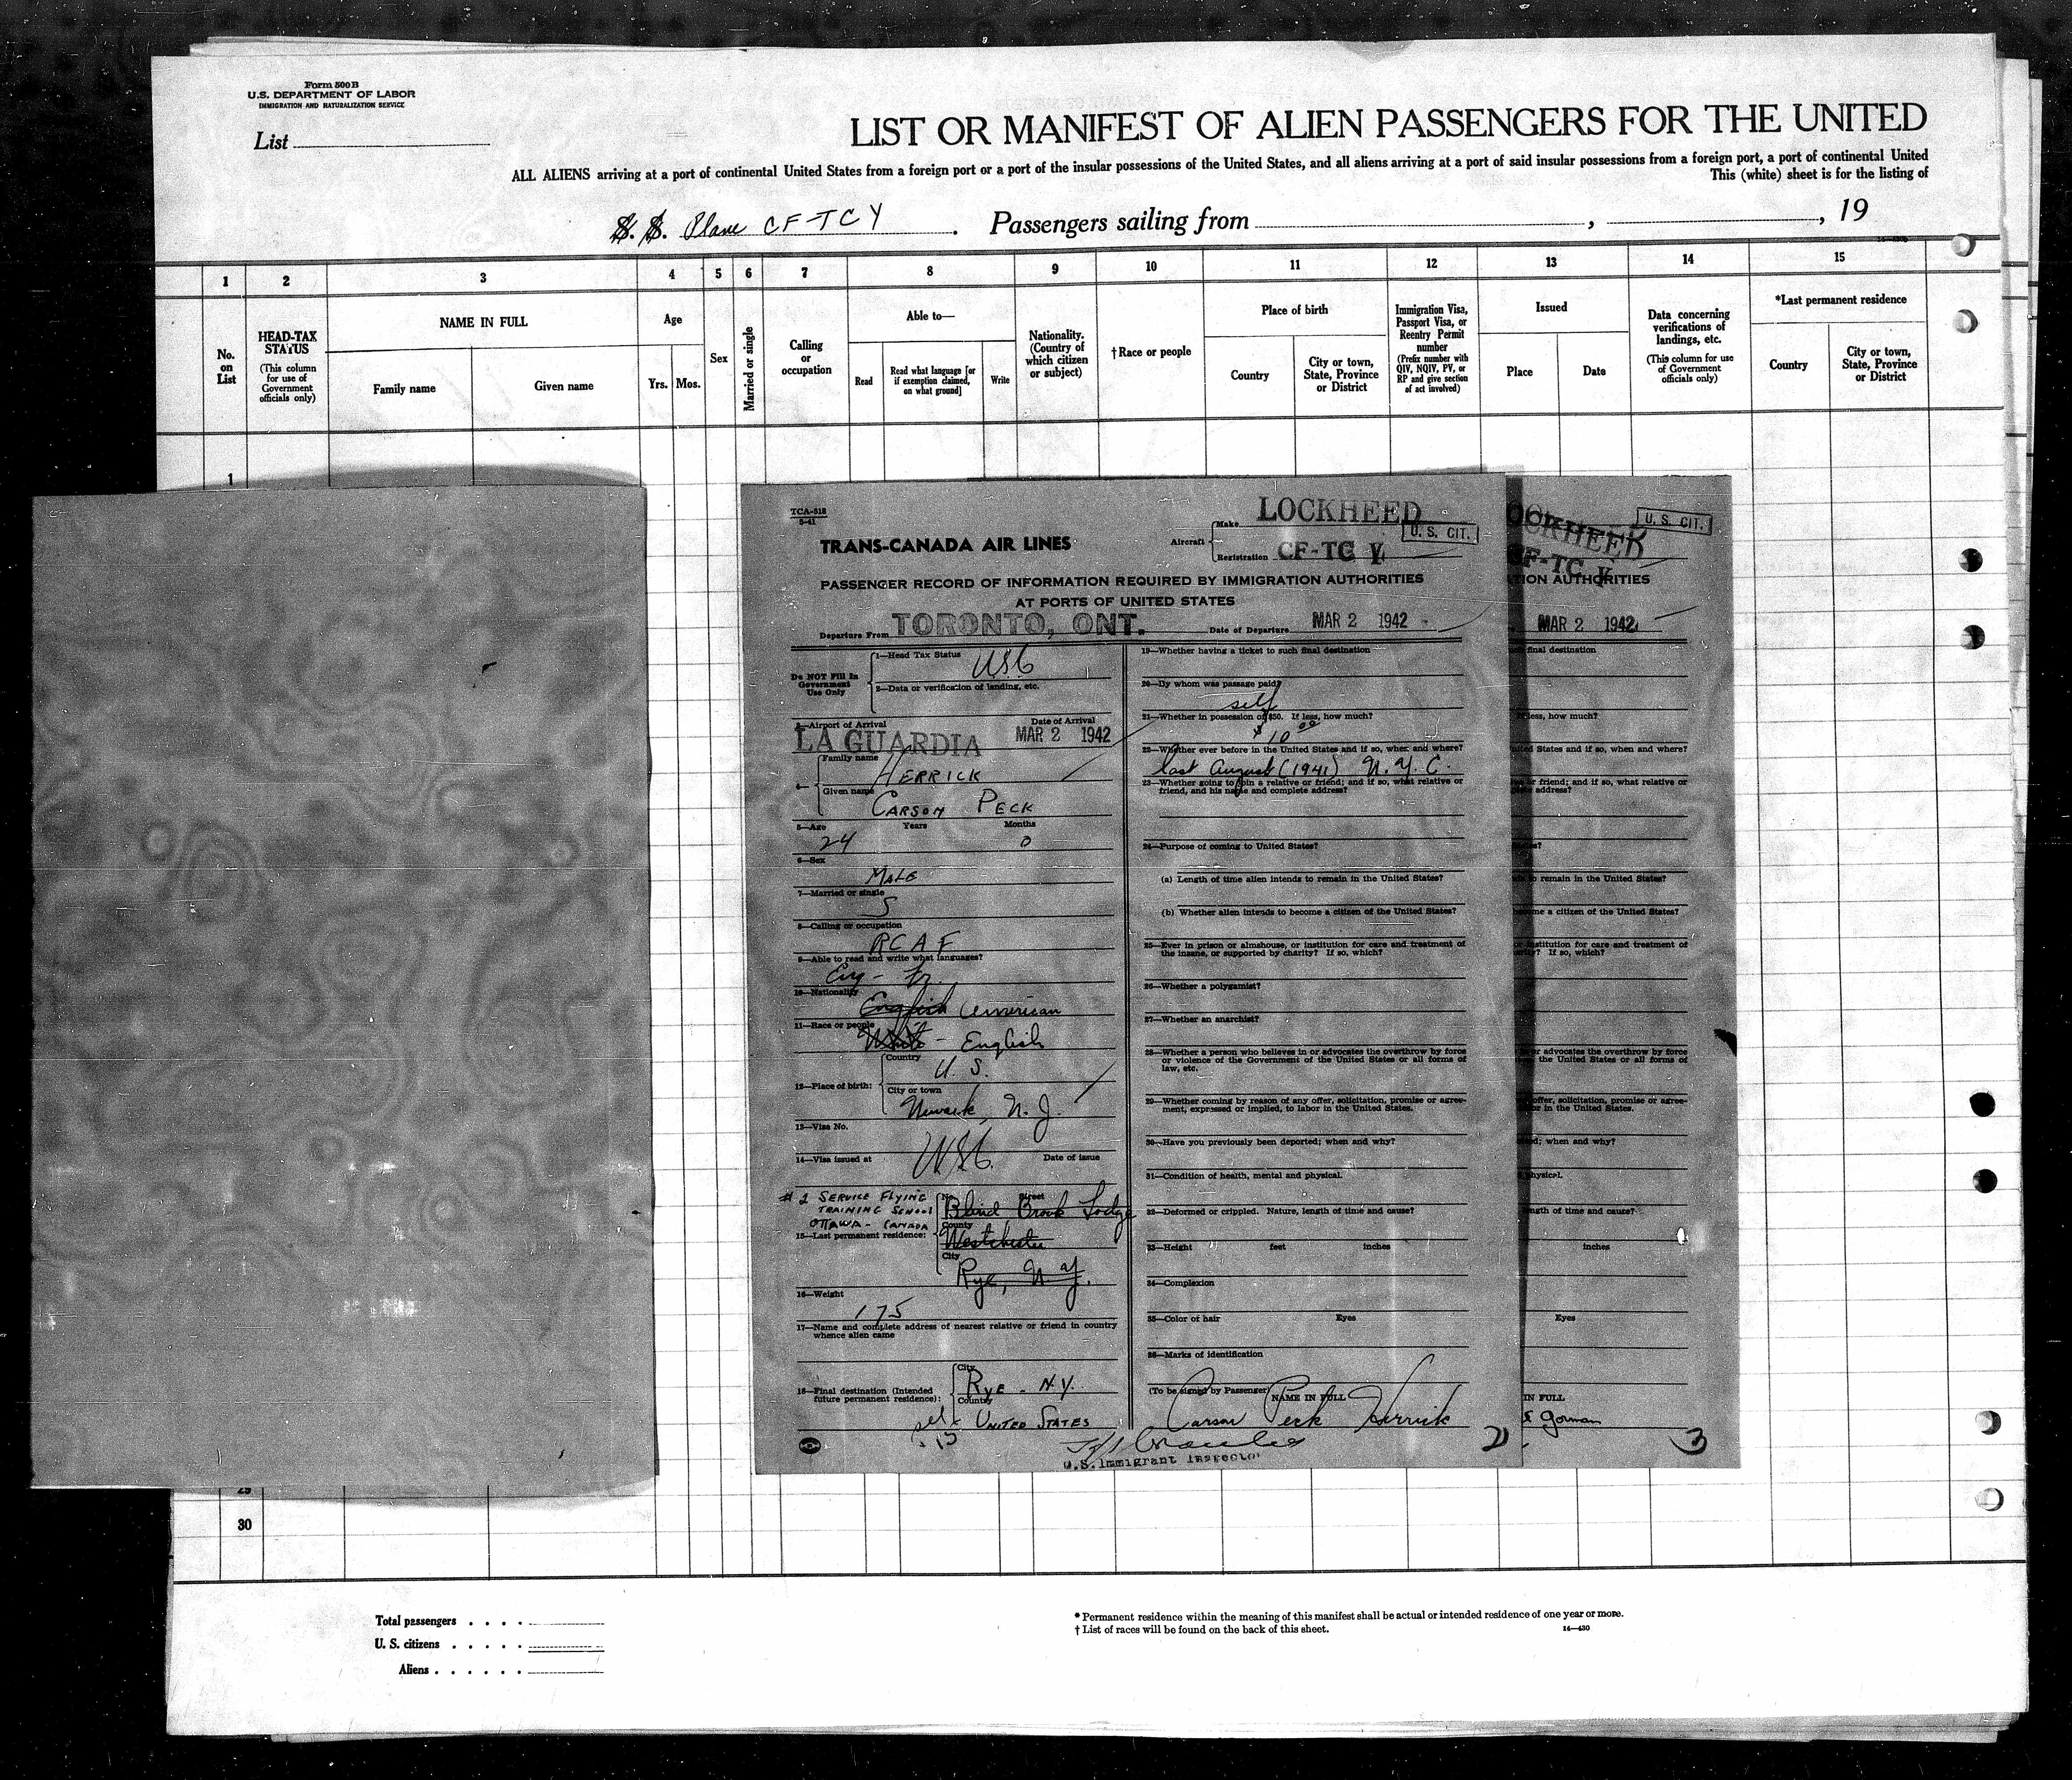 Form 500 B
U.S. DEPARTMENT OF LABOR
IMMIGRATION AND NATURALIZATION SERVICE
List
LIST OR MANIFEST OF ALIEN PASSENGERS FOR THE UNITED
ALL ALIENS arriving at a port of continental United States from a foreign port or a port of the insular possessions of the United States, and all aliens arriving at a port of said insular possessions from a foreign port, a port of continental United
This (white) sheet is for the listing of
S. S. Plane CF-TCY. Passengers sailing from , , 19
1 2 3 4 5 6 7 8 9 10 11 12 13 14 15
No. on List
HEAD-TAX STATUS
(This column for use of Government officials only)
NAME IN FULL
Family name
Given name
Age
Yrs.
Mos.
Sex
Married or single
Calling or occupation
Able to—
Read
Read what language [or if exemption claimed, on what ground]
Write
Nationality. (Country of which citizen or subject)
†Race or people
Place of birth
Country
City or town, State, Province or District
Immigration Visa, Passport Visa, or Reentry Permit number
(Prefix number with QIV, NQIV, PV, or RP and give section of act involved)
Issued
Place
Date
Data concerning verifications of landings, etc.
(This column for use of Government officials only)
*Last permanent residence
Country
City or town, State, Province or District
1
TCA-518
5-41
TRANS-CANADA AIR LINES
Aircraft
Make LOCKHEED
U. S. CIT.
Registration CF-TC Y
PASSENGER RECORD OF INFORMATION REQUIRED BY IMMIGRATION AUTHORITIES
AT PORTS OF UNITED STATES
Departure From TORONTO, ONT. Date of Departure MAR 2 1942
Do NOT Fill In
Government
Use Only
1—Head Tax Status USC
2—Data or verification of landing, etc.
3—Airport of Arrival Date of Arrival
LA GUARDIA MAR 2 1942
4—
Family name HERRICK
Given name CARSON PECK
5—Age Years Months
24 0
6—Sex
MALE
7—Married or single
S
8—Calling or occupation
RCAF
9—Able to read and write what languages?
Eng - Fr.
10—Nationality
English American
11—Race or people
White - English
12—Place of birth:
Country
U. S.
City or town
Newark, N. J.
13—Visa No.
USC
14—Visa issued at Date of issue
# 2 SERVICE FLYING
TRAINING SCHOOL
OTTAWA - CANADA
15—Last permanent residence:
No. Street
Blind Brook Lodge
County
Westchester
City
Rye, N.Y.
16—Weight
175
17—Name and complete address of nearest relative or friend in country
whence alien came
18—Final destination (Intended
future permanent residence):
City
RYE - N.Y.
Country
UNITED STATES
19—Whether having a ticket to such final destination
20—By whom was passage paid?
self
21—Whether in possession of $50. If less, how much?
$ 10 00
22—Whether ever before in the United States and if so, when and where?
last August (1941) N.Y.C.
23—Whether going to join a relative or friend; and if so, what relative or
friend, and his name and complete address?
24—Purpose of coming to United States?
(a) Length of time alien intends to remain in the United States?
(b) Whether alien intends to become a citizen of the United States?
25—Ever in prison or almshouse, or institution for care and treatment of
the insane, or supported by charity? If so, which?
26—Whether a polygamist?
27—Whether an anarchist?
28—Whether a person who believes in or advocates the overthrow by force
or violence of the Government of the United States or all forms of
law, etc.
29—Whether coming by reason of any offer, solicitation, promise or agree-
ment, expressed or implied, to labor in the United States.
30—Have you previously been deported; when and why?
31—Condition of health, mental and physical.
32—Deformed or crippled. Nature, length of time and cause?
33—Height feet inches
34—Complexion
35—Color of hair Eyes
36—Marks of identification
(To be signed by Passenger) NAME IN FULL
Carson Peck Herrick
U.S. Immigrant Inspector
2
OCKHEED
U. S. CIT.
CF-TC Y
TION AUTHORITIES
MAR 2 1942
final destination
less, how much?
ited States and if so, when and where?
or friend; and if so, what relative or
address?
to remain in the United States?
become a citizen of the United States?
or institution for care and treatment of
arity? If so, which?
or advocates the overthrow by force
the United States or all forms of
offer, solicitation, promise or agree-
or in the United States.
ed; when and why?
physical.
ngth of time and cause?
inches
Eyes
IN FULL
Gorman
3
29
30
Total passengers
U. S. citizens
Aliens
* Permanent residence within the meaning of this manifest shall be actual or intended residence of one year or more.
† List of races will be found on the back of this sheet.
14—430